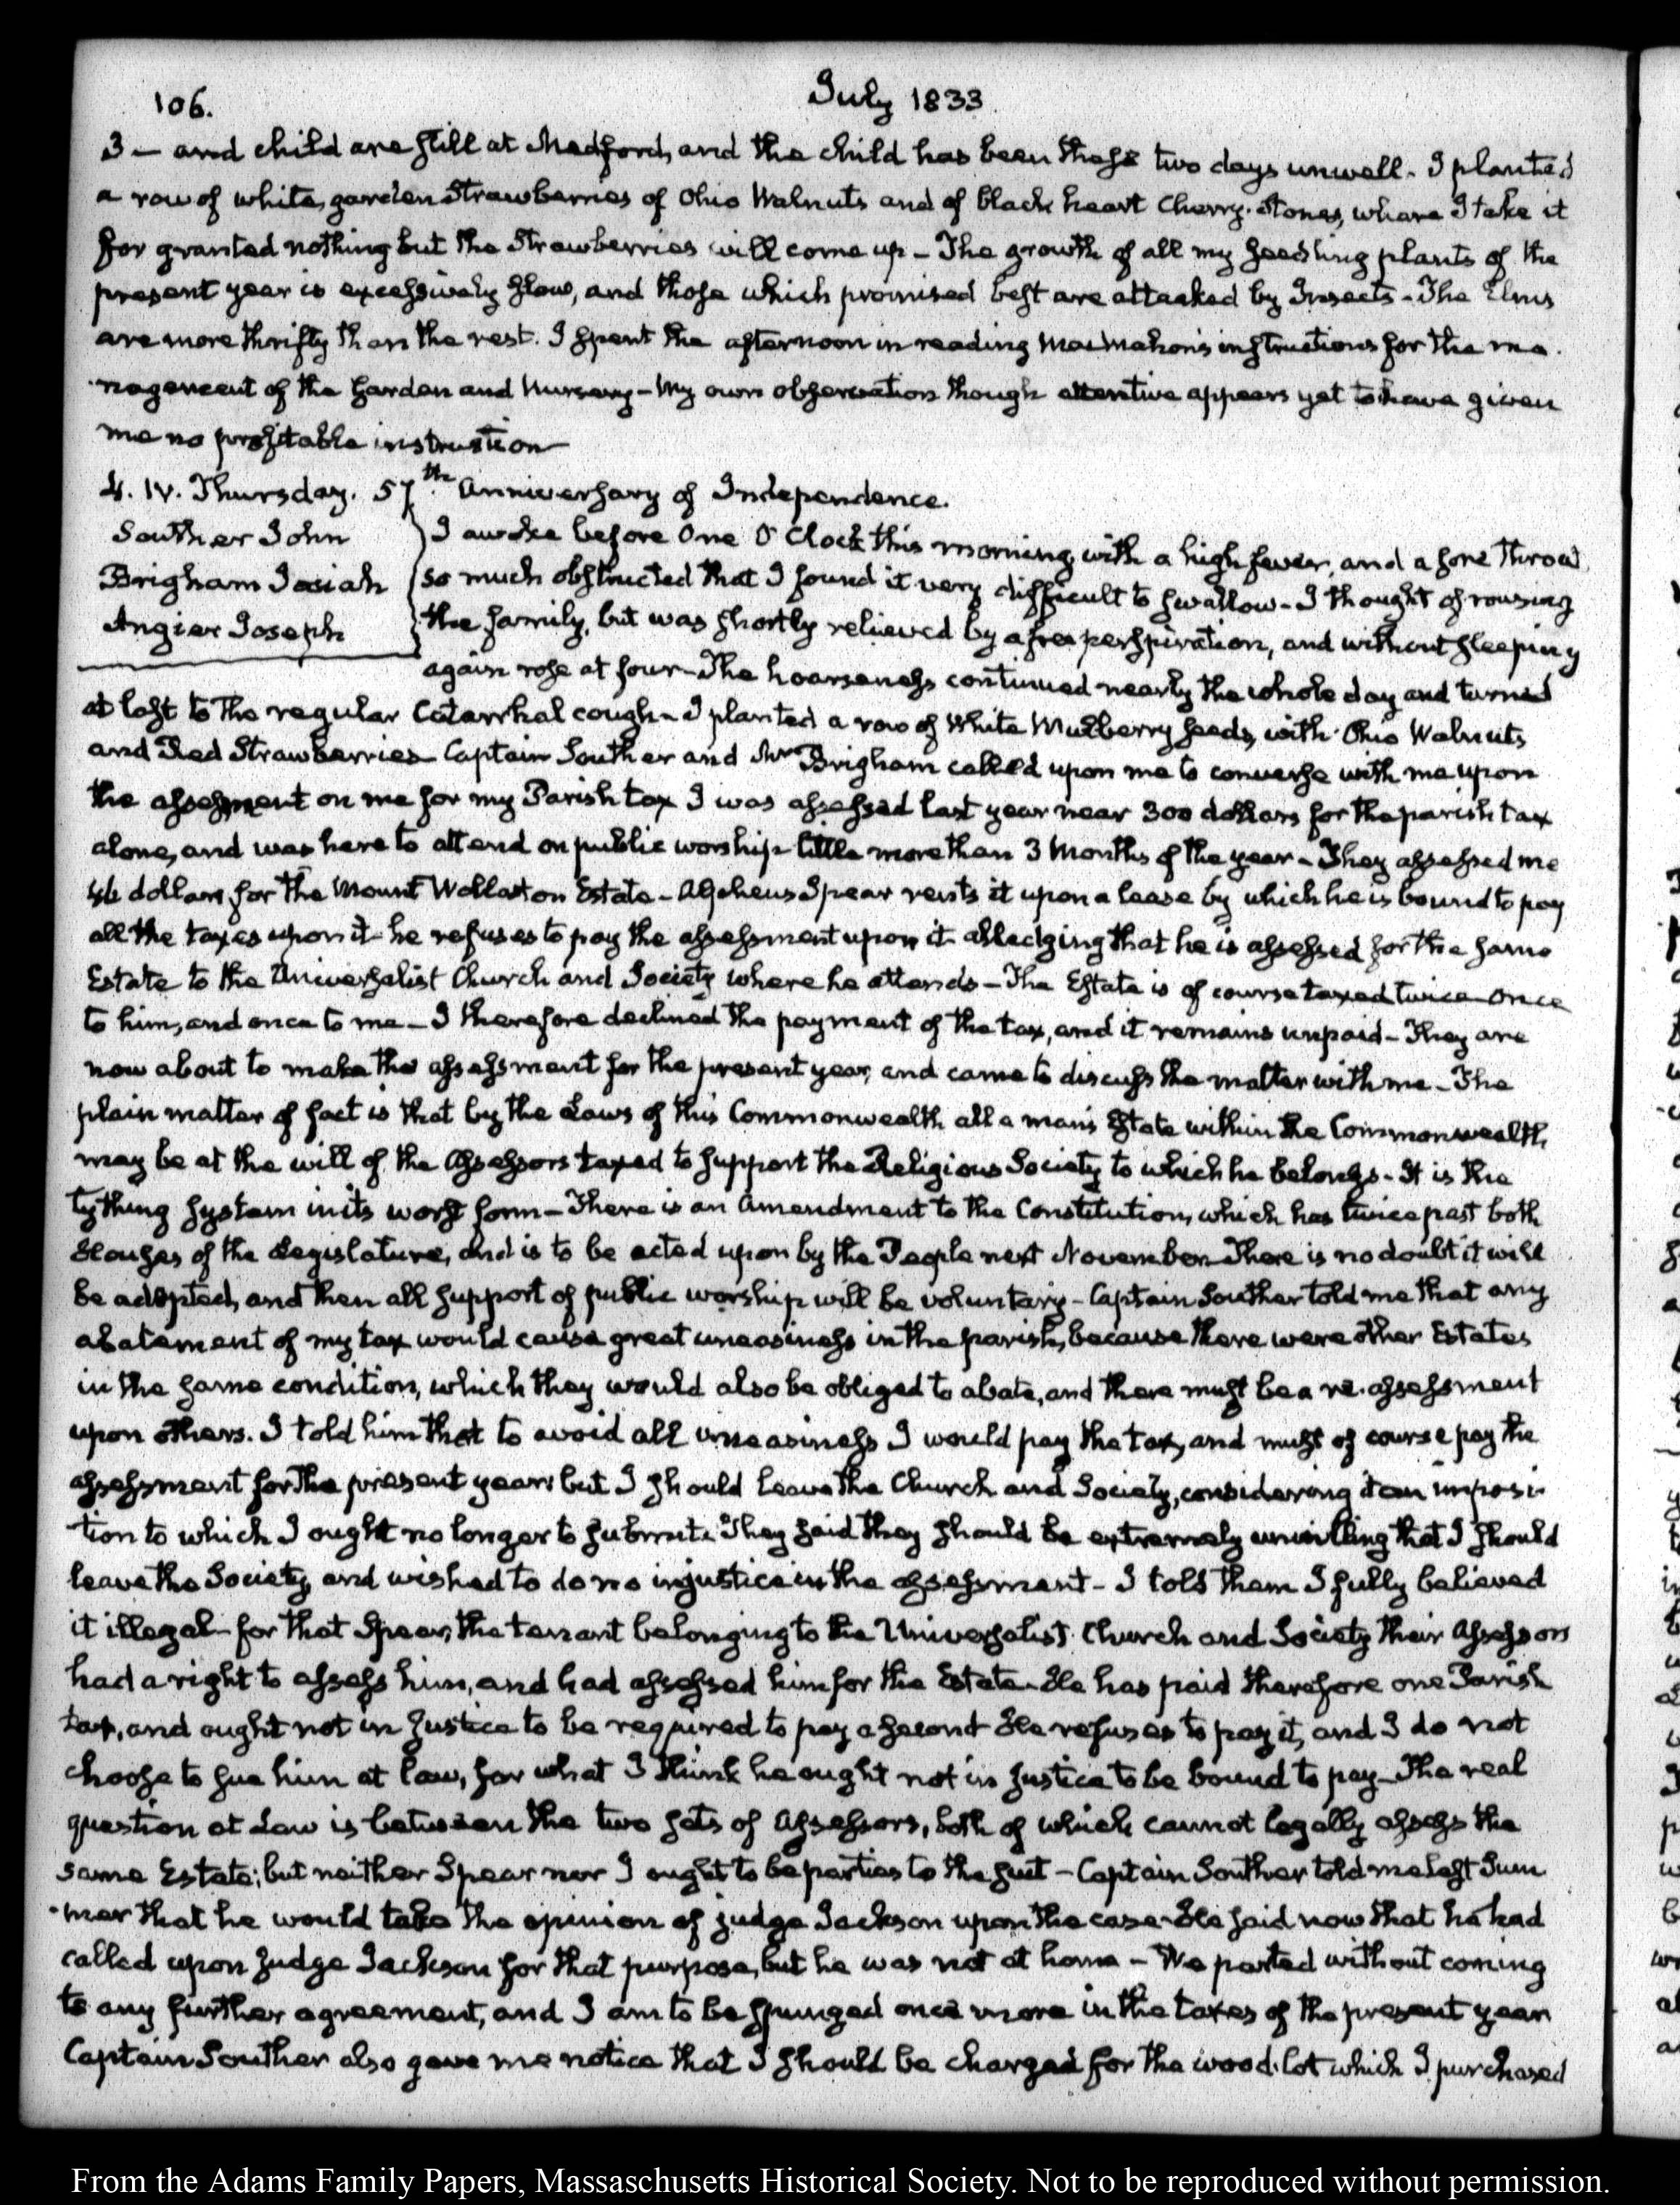 106.
July 1833
3 — and child are still at Medford, and the child has been these two days unwell. I planted
a row of white, garden Strawberries of Ohio Walnuts and of black heart Cherry-Stones, where I take it
for granted nothing but the Strawberries will come up – The growth of all my seedling plants of the
present year is excessively slow, and those which promised best are attacked by Insects – The Elms
are more thrifty than the rest. I spent the afternoon in reading MacMahon's instructions for the ma-
-nagement of the Garden and Nursery – My own observation though attentive appears yet to have given
me no profitable instruction
4. IV. Thursday. 57th Anniversary of Independence.
Souther John
Brigham Josiah
Angier Joseph
I awoke before One O'Clock this morning, with a high fever, and a sore throat
so much obstructed that I found it very difficult to swallow – I thought of rousing
the family, but was shortly relieved by a free perspiration, and without sleeping
again rose at four – The hoarseness continued nearly the whole day and turned
at last to the regular Catarrhal cough – I planted a row of White Mulberry seeds, with Ohio Walnuts
and Red Strawberries – Captain Souther and Mr Brigham called upon me to converse with me upon
the assessment on me for my Parish tax I was assessed last year near 300 dollars for the parish tax
alone, and was here to attend on public worship little more than 3 Months of the year – They assessed me
46 dollars for the Mount Wollaston Estate – Alpheus Spear rents it upon a lease by which he is bound to pay
all the taxes upon it – he refuses to pay the assessment upon it alledging that he is assessed for the same
Estate to the Universalist Church and Society where he attends – The Estate is of course taxed twice – once
to him, and once to me – I therefore declined the payment of the tax, and it remains unpaid – They are
now about to make the assessment for the present year, and came to discuss the matter with me – The
plain matter of fact is that by the Laws of this Commonwealth all a man's Estate within the Commonwealth,
may be at the will of the Assessors taxed to support the Religious Society to which he belongs – It is the
tything system in its worst form – There is an Amendment to the Constitution, which has twice past both
Houses of the Legislature, and is to be acted upon by the People next November – There is no doubt it will
be adopted, and then all support of public worship will be voluntary – Captain Souther told me that any
abatement of my tax would cause great uneasiness in the parish, because there were other Estates
in the same condition, which they would also be obliged to abate, and there must be a re-assessment
upon others. I told him that to avoid all uneasiness I would pay the tax, and must of course pay the
assessment for the present year: but I should leave the Church and Society, considering it an imposi-
-tion to which I ought no longer to submit. They said they should be extremely unwilling that I should
leave the Society, and wished to do no injustice in the assessment – I told them I fully believed
it illegal – for that Spear, the tenant belonging to the Universalist Church and Society their Assessors
had a right to assess him, and had assessed him for the Estate – He has paid therefore one Parish
tax, and ought not in Justice to be required to pay a second – He refuses to pay it, and I do not
choose to sue him at law, for what I think he ought not in Justice to be bound to pay – The real
question at Law is between the two sets of Assessors, both of which cannot legally assess the
same Estate; but neither Spear nor I ought to be parties to the suit – Captain Souther told me last Sum-
-mer that he would take the opinion of Judge Jackson upon the case – He said now that he had
called upon Judge Jackson for that purpose, but he was not at home – We parted without coming
to any further agreement, and I am to be spunged once more in the taxes of the present year
Captain Souther also gave me notice that I should be charged for the wood-lot which I purchased
From the Adams Family Papers, Massachusetts Historical Society. Not to be reproduced without permission.